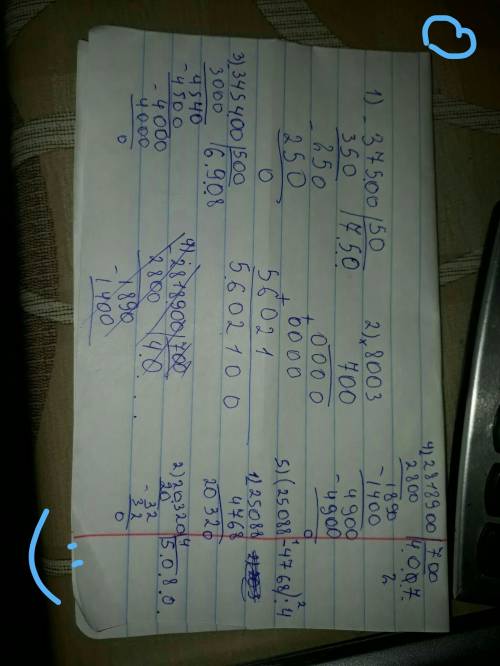 1) - 37500 | 50
350 | 7.50
- 250
250
0
2) x 8003
700
+ 0000
+ 0000
56021
5602100
3) 345400 | 500
3000 | 6.9.0.8
- 4540
4500
- 4000
4000
0
4) 2818900 | 700
2800 | 4.0
- 1890
1400
4) 2818900 | 700
2800 | 4.0.0.7.
- 1890
- 1400
- 4900
- 4900
0
5) (25088 - 4768) : 4
1) 25088
4768
20320
2) 20320 | 4
20 | 5.0.8.0.
- 32
32
0